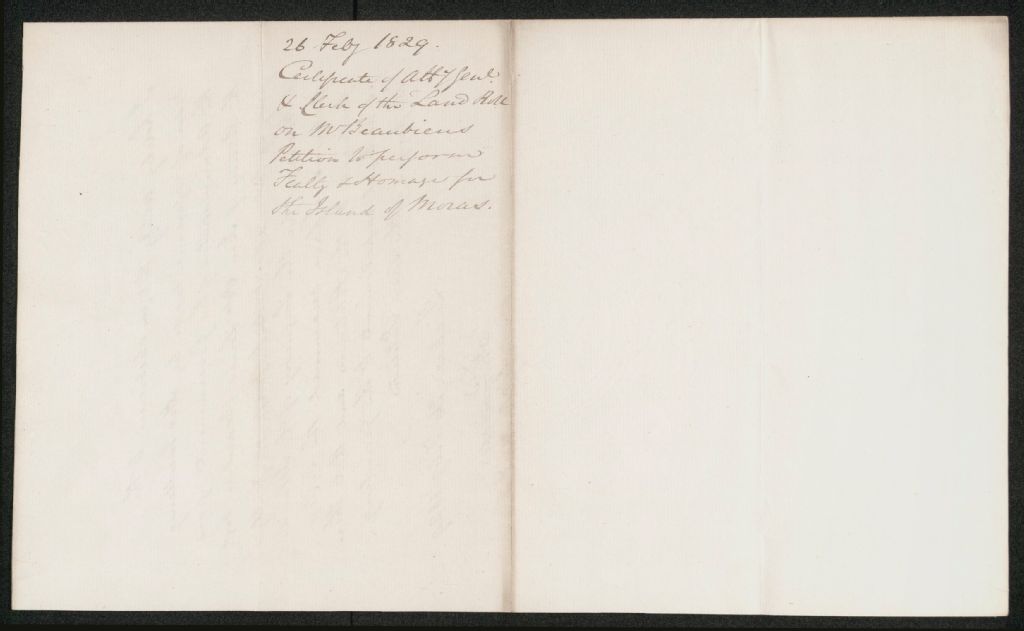 26 Feby 1829.
Certificate of Atty Genl.
& Clerk of the Land Roll
on Mr Beaubiens
Petition to perform
Fealty & Homage for
the Island of Moras.